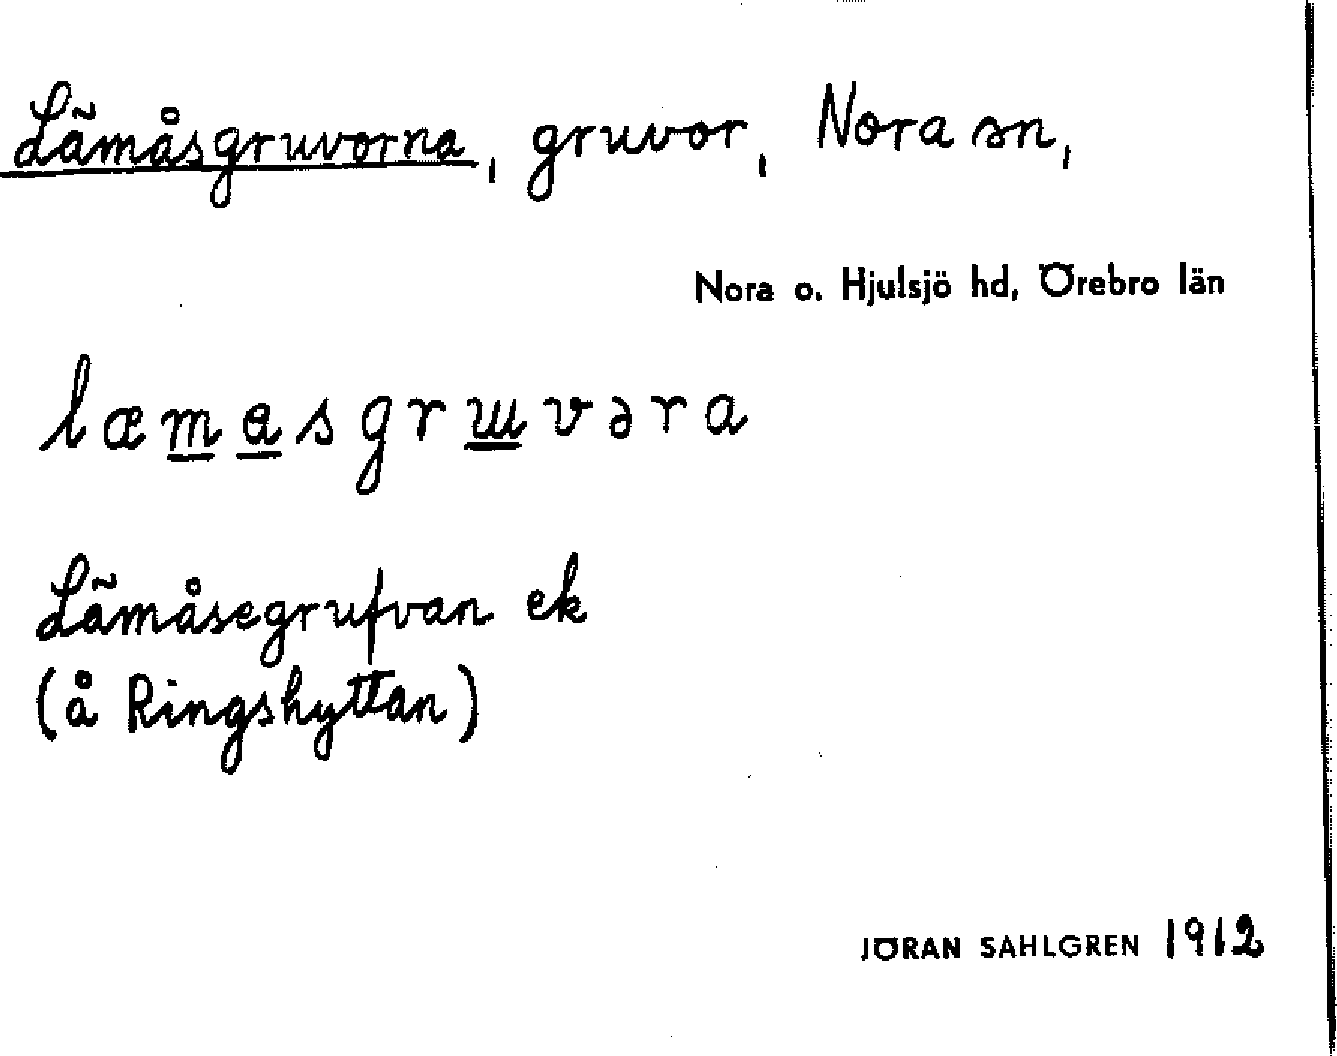 Lämåsgruvorna, gruvor, Nora sn,
Nora o. Hjulsjö hd, Örebro län
læmasgruvəra
Lämåsegrufvan ek
(å Ringshyttan)
JÖRAN SAHLGREN 1912